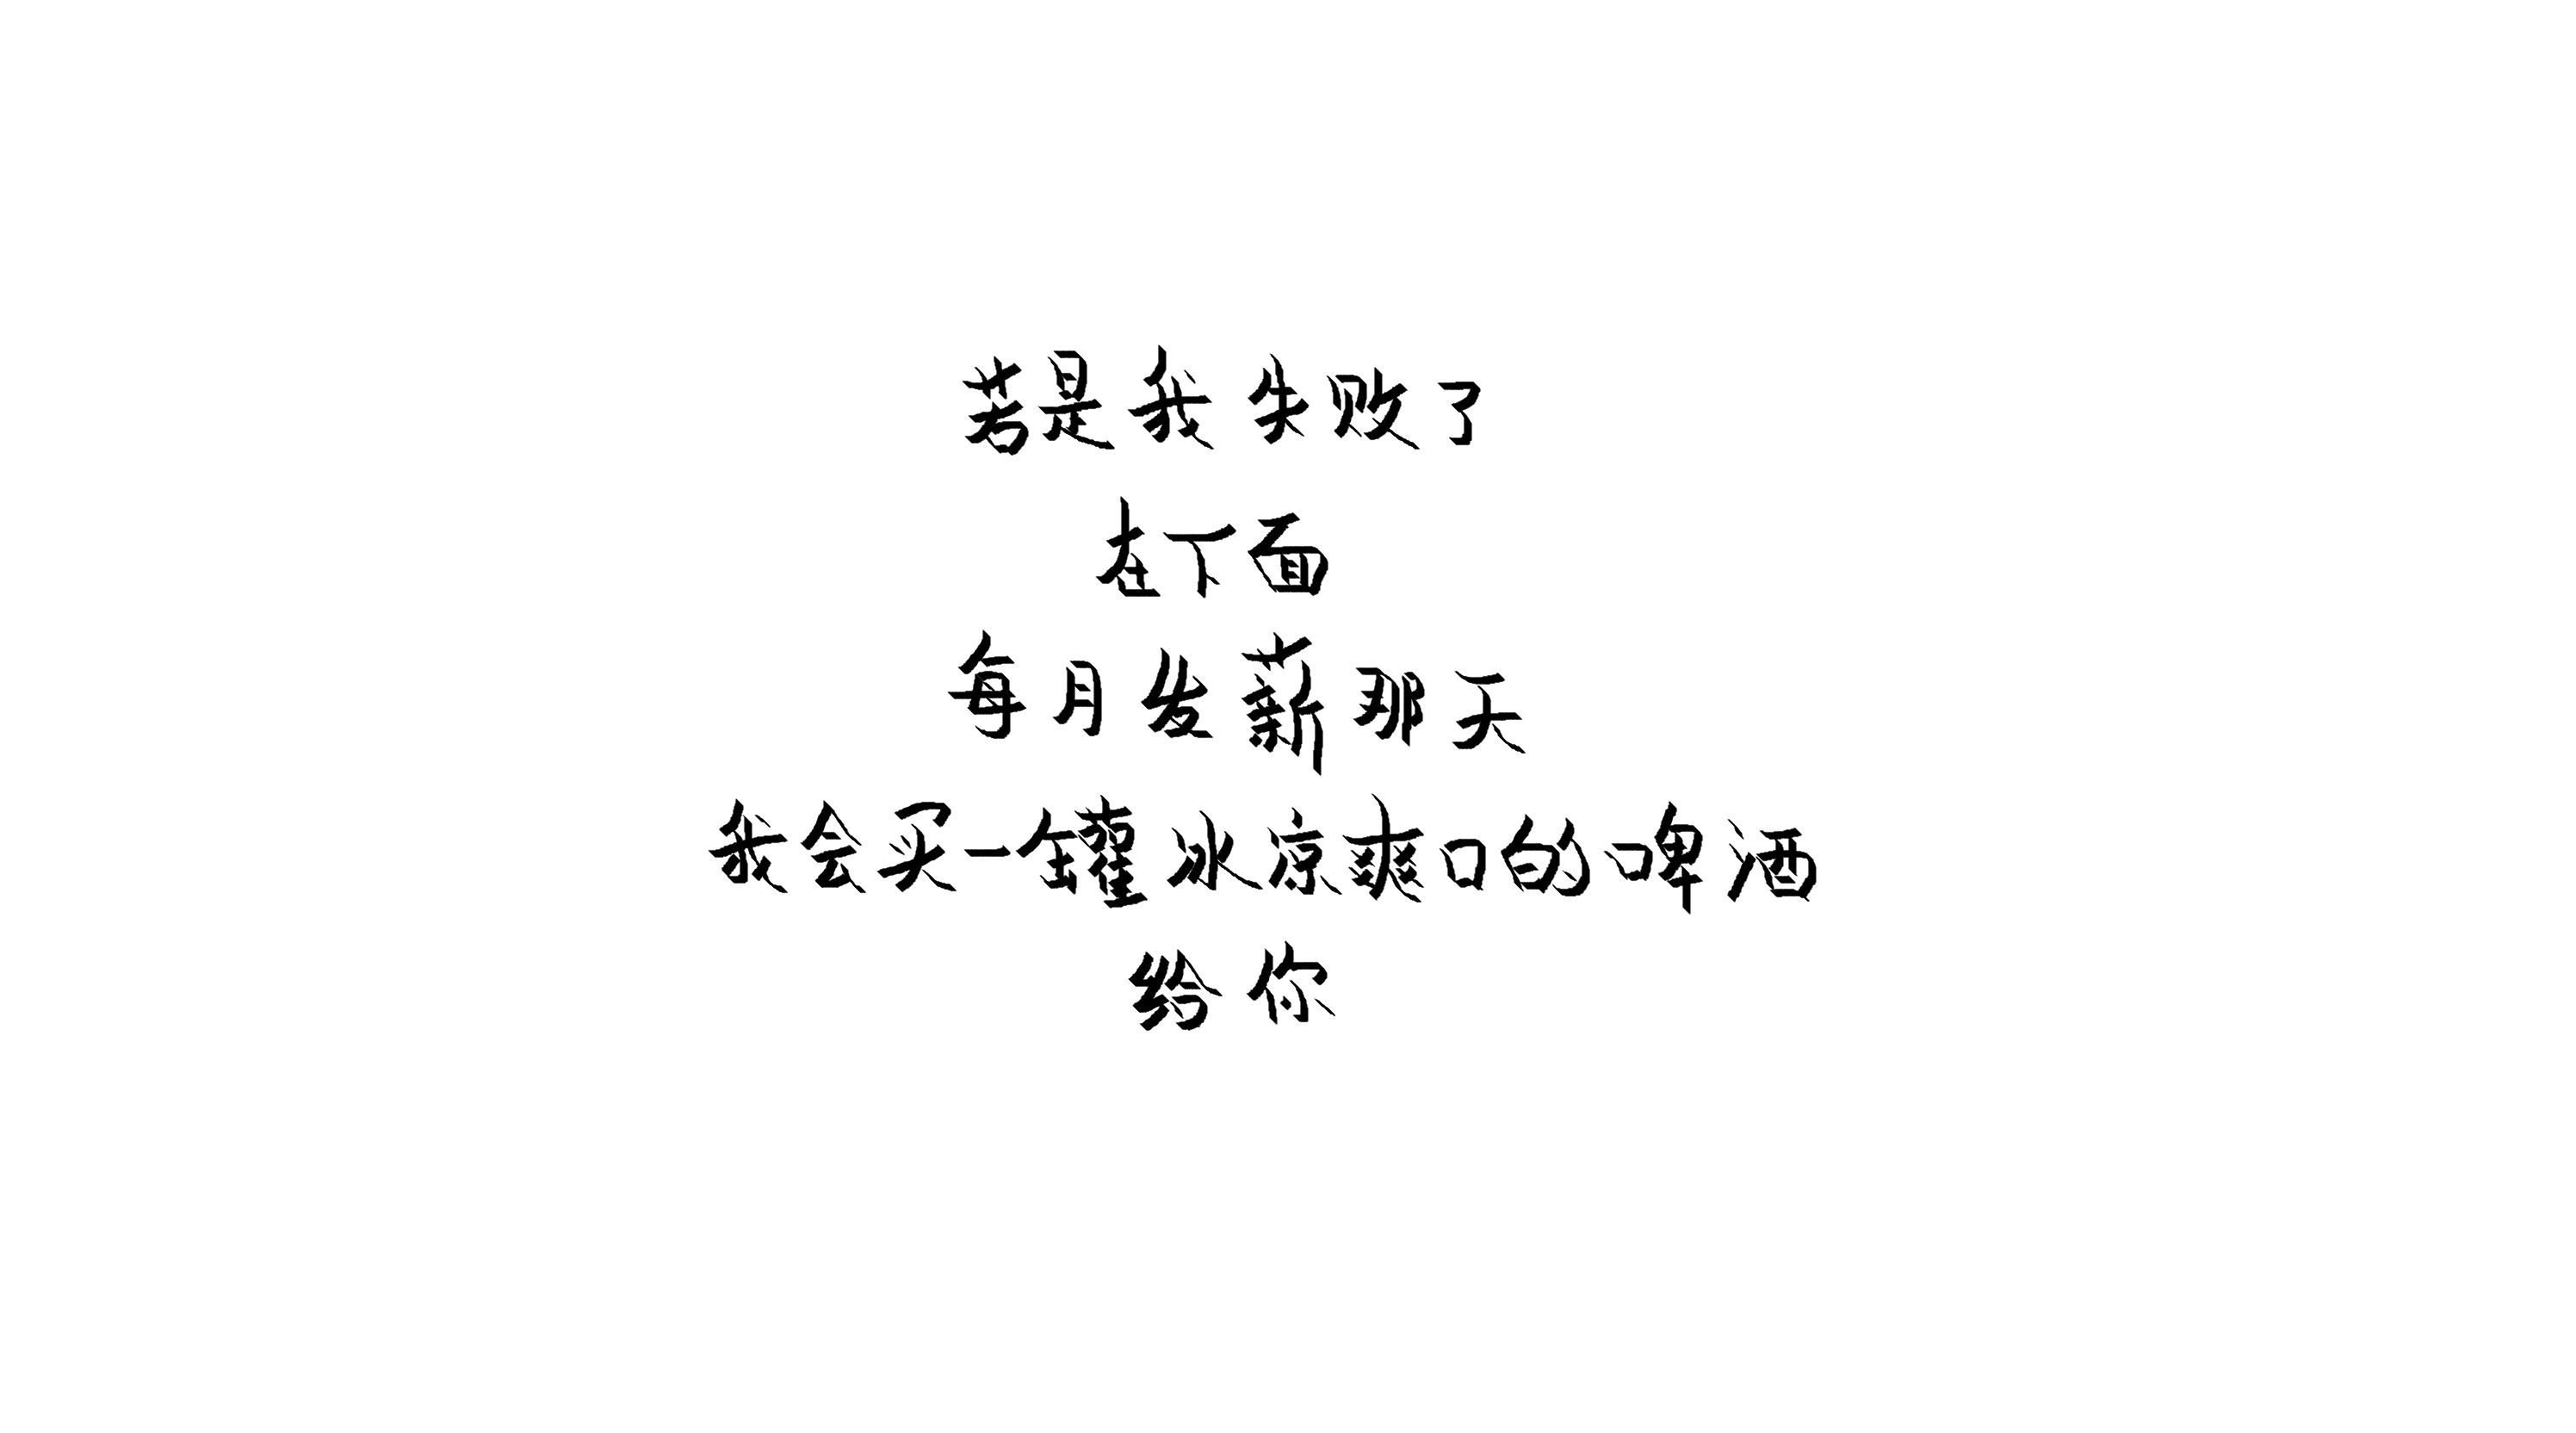 若是我失败了
在下面
每月发薪那天
我会买一罐冰凉爽口的啤酒
给你